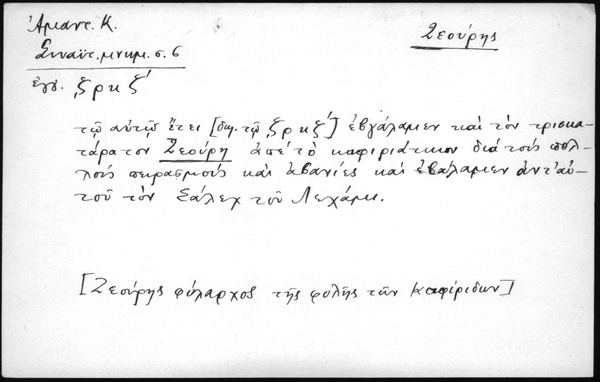 Ἀμαντ. Κ.
Σιναϊτ. μνημ. σ. 6
ἔγγ. ͵ζρκζ΄
Ζεούρης
τῷ αὐτῷ ἔτει [δηλ. τῷ ͵ζρκζ΄] ἐβγάλαμεν καὶ τὸν τρισκα-
τάρατον Ζεούρη ἀπὲ τὸ καφιριάτικον διὰ τοὺς πολ-
λοὺς πειρασμοὺς καὶ ἀβανίες καὶ ἐβάλαμεν ἀντ' αὐ-
τοῦ τὸν Σάλεχ τοῦ Λεχάμι.
[Ζεούρης φύλαρχος τῆς φυλῆς τῶν Καφίριδων]